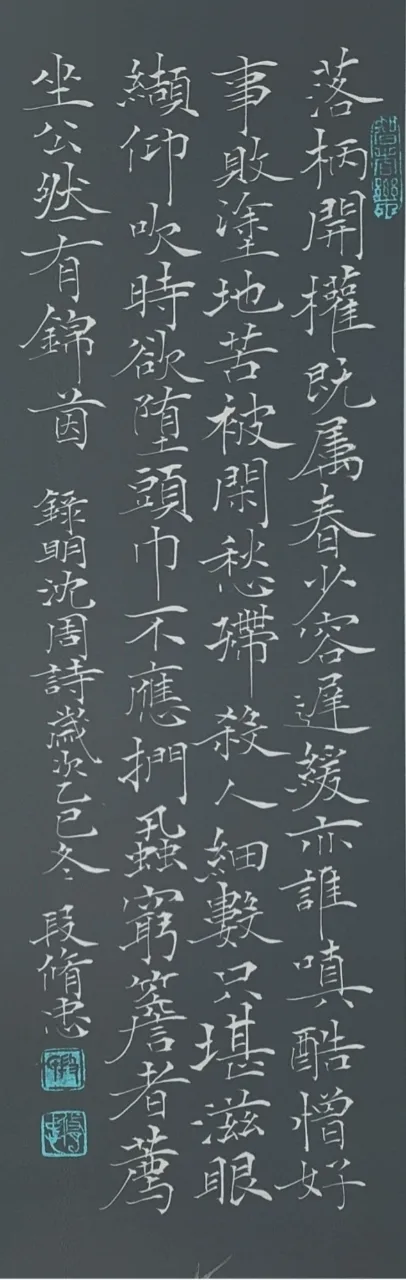 落柄開權既属春少容遲緩亦誰嗔酷憎好
事敗塗地苦被閑愁殢殺人細數只堪滋眼
纈仰吹時欲堕頭巾不應捫蝨窮簷者薦
坐公然有錦茵 錄明沈周詩歲次乙巳冬 段脩忠